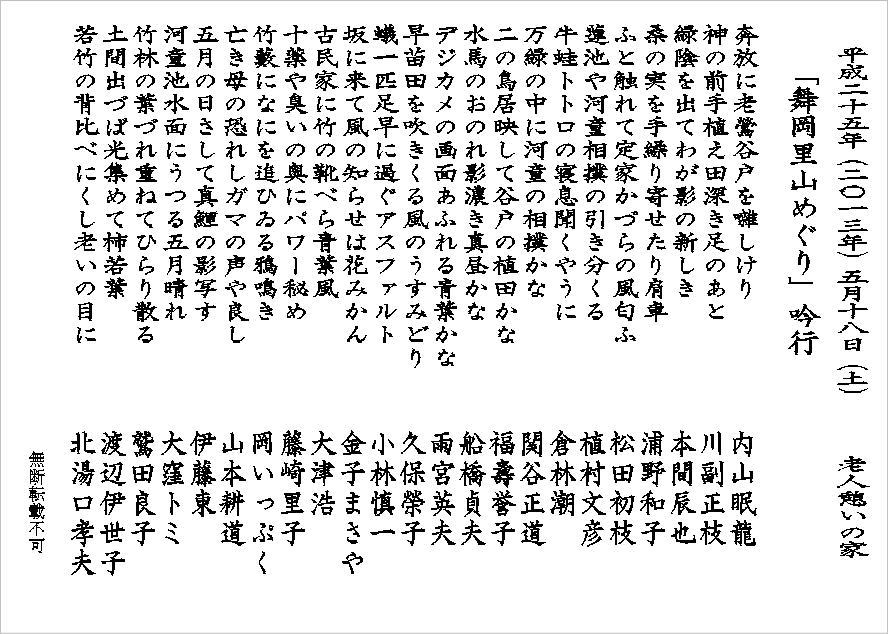 平成二十五年（二〇一三年）五月十八日（土）　老人憩いの家
「舞岡里山めぐり」吟行
奔放に老鶯谷戸を囃しけり　内山眠龍
神の前手植え田深き足のあと　川副正枝
緑陰を出てわが影の新しき　本間辰也
桑の実を手繰り寄せたり肩車　浦野和子
ふと触れて定家かづらの風匂ふ　松田初枝
蓮池や河童相撲の引き分くる　植村文彦
牛蛙トトロの寝息聞くやうに　倉林潮
万緑の中に河童の相撲かな　関谷正道
二の鳥居映して谷戸の植田かな　福壽誉子
水馬のおのれ影濃き真昼かな　船橋貞夫
デジカメの画面あふれる青葉かな　雨宮英夫
早苗田を吹きくる風のうすみどり　久保榮子
蟻一匹足早に過ぐアスファルト　小林慎一
坂に来て風の知らせは花みかん　金子まさや
古民家に竹の靴べら青葉風　大津浩
十薬や臭いの奥にパワー秘め　藤崎里子
竹藪になにを追ひゐる鴉鳴き　岡いっぷく
亡き母の恐れしガマの声や良し　山本耕道
五月の日さして真鯉の影写す　伊藤東
河童池水面にうつる五月晴れ　大窪トミ
竹林の葉づれ重ねてひらり散る　鷲田良子
土間出づば光集めて柿若葉　渡辺伊世子
若竹の背比べにくし老いの目に　北湯口孝夫
無断転載不可